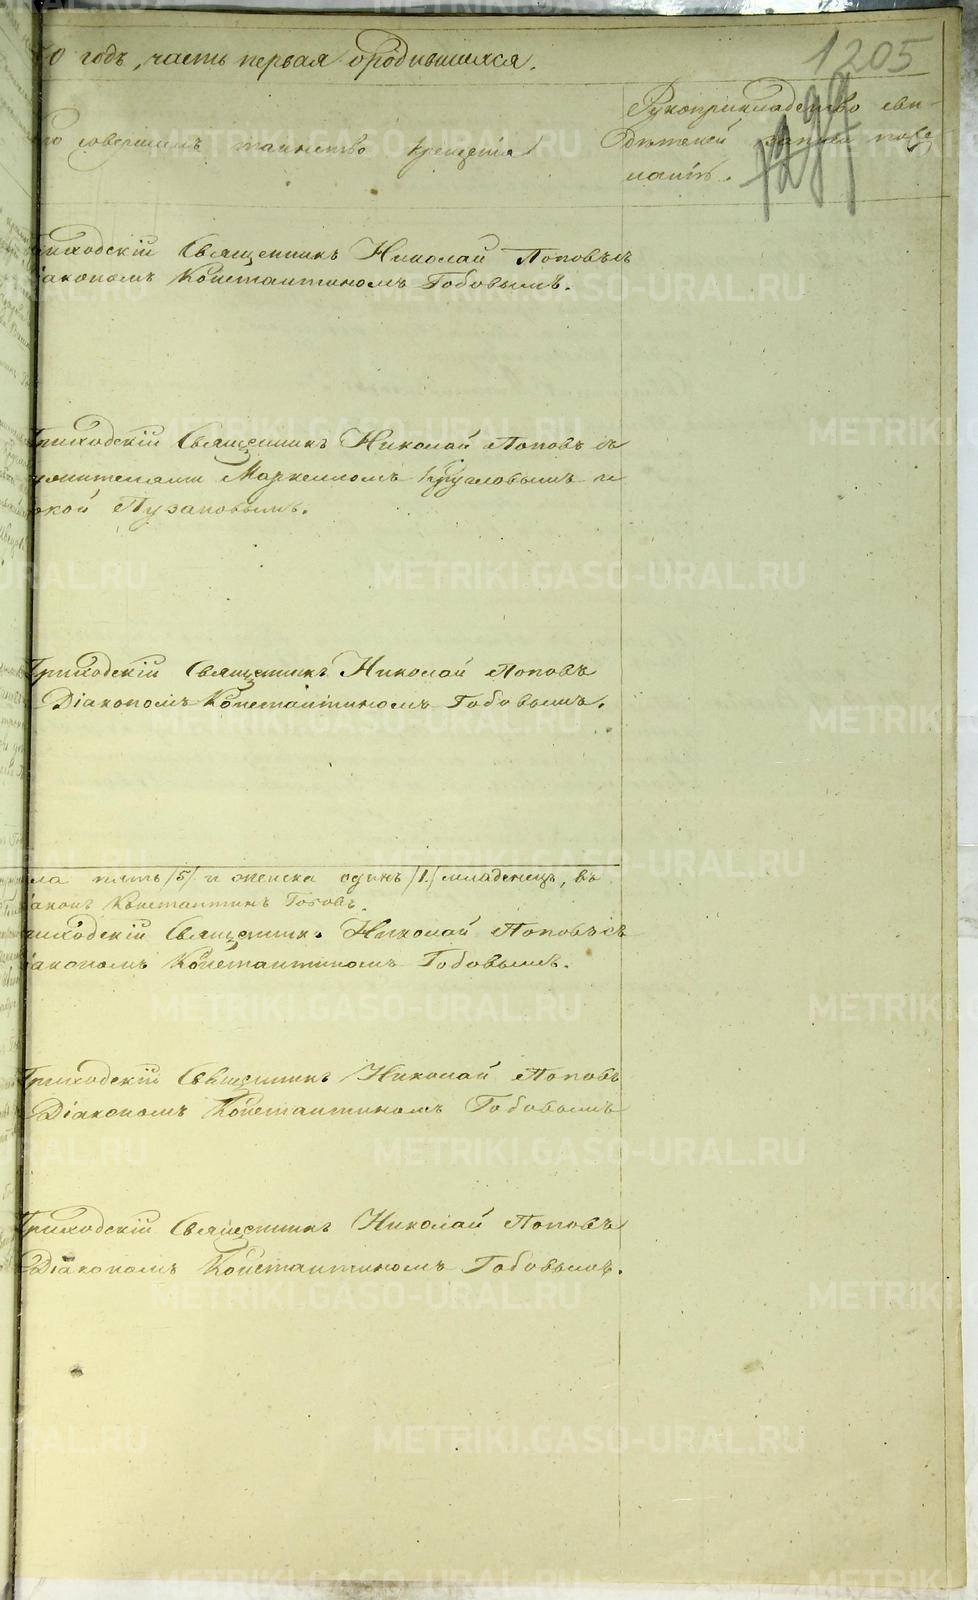 0 годъ, часть первая о родившихся.
1205
1299
Рукоприкладство сви-
совершилъ таинство крещенія
дѣтелей записи поже
ланію.
риходскій Священникъ Николай Поповъ съ
іакономъ Константиномъ Гобовымъ.
Приходскій Священникъ Николай Поповъ съ
Маркеломъ Кругловымъ и
Пузановымъ.
Приходскій Священникъ Николай Поповъ
Діакономъ Константиномъ Гобовымъ.
ла пять /5/ и женска одинъ /1/ младенецъ, въ
іаконъ Константинъ Гобовъ.
риходскій Священникъ Николай Поповъ съ
іакономъ Константиномъ Гобовымъ.
Приходскій Священникъ Николай Поповъ
Діакономъ Константиномъ Гобовымъ
Приходскій Священникъ Николай Поповъ
Діакономъ Константиномъ Гобовымъ.
METRIKI.GASO-URAL.RU